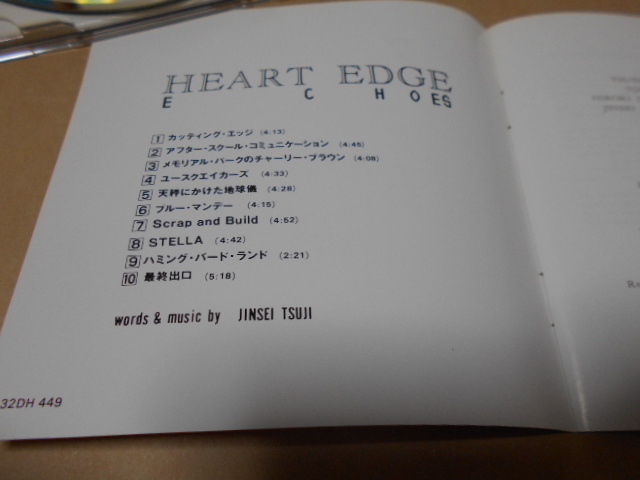 HEART EDGE
ECHOES
1 カッティング・エッジ (4:13)
2 アフター・スクール・コミュニケーション (4:45)
3 メモリアル・パークのチャーリー・ブラウン (4:08)
4 ユースクエイカーズ (4:33)
5 天秤にかけた地球儀 (4:28)
6 ブルー・マンデー (4:15)
7 Scrap and Build (4:52)
8 STELLA (4:42)
9 ハミング・バード・ランド (2:21)
10 最終出口 (5:18)
words & music by JINSEI TSUJI
32DH 449